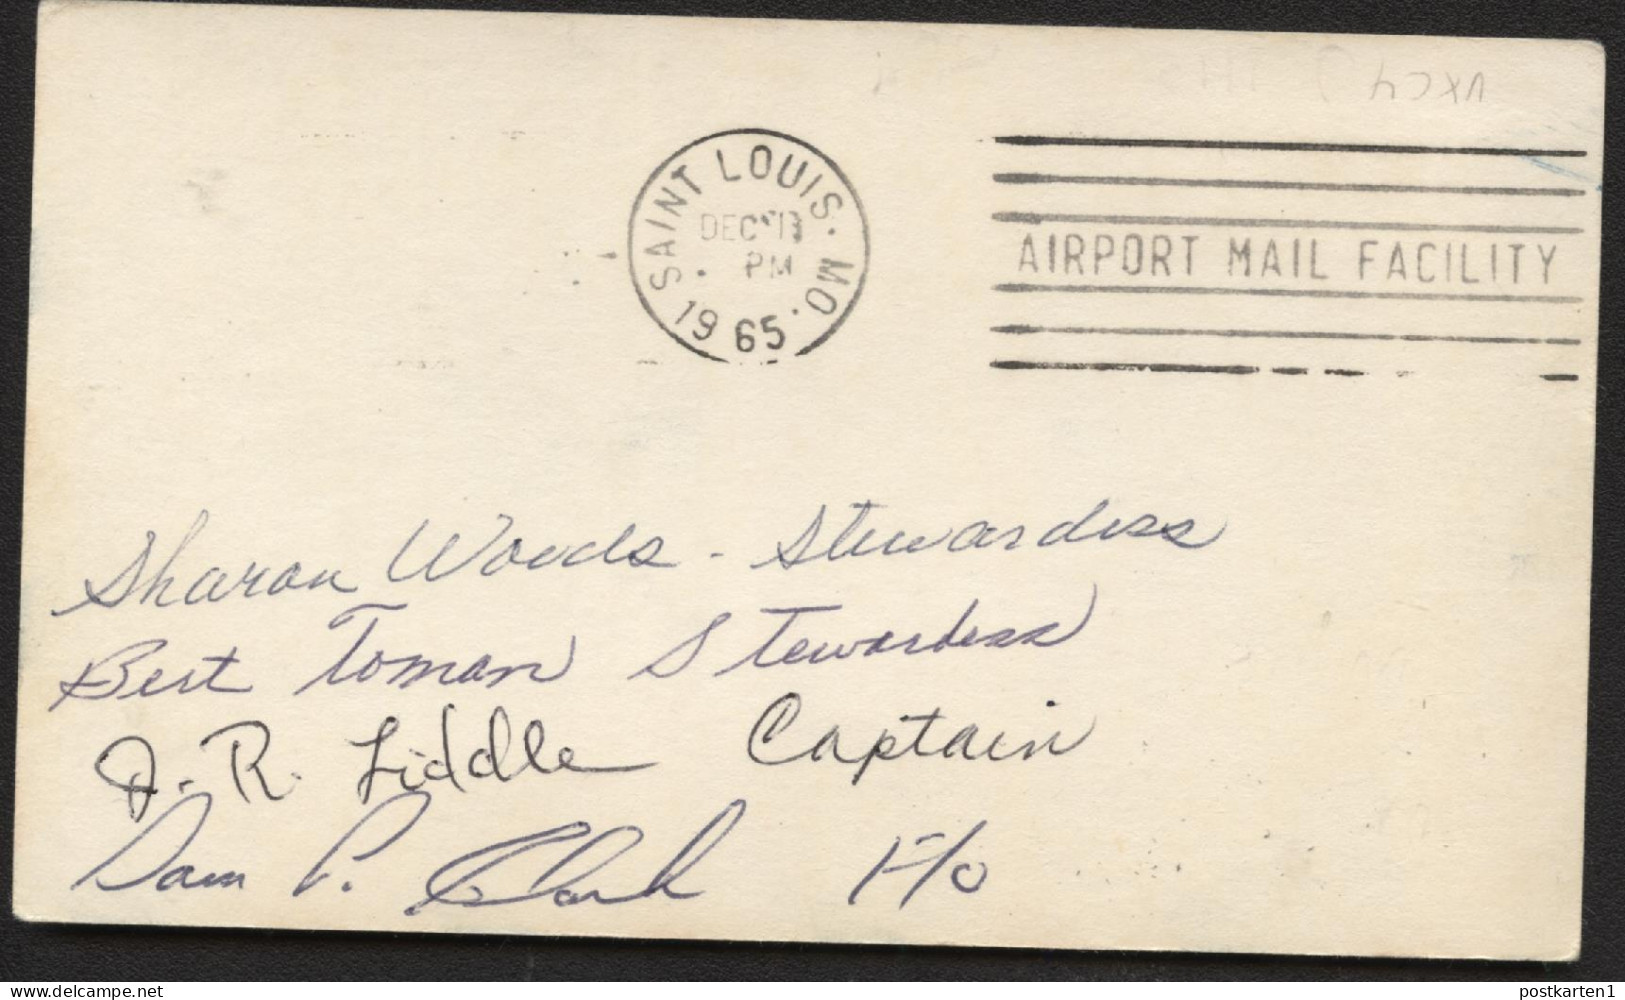 SAINT LOUIS. MO.
DEC 13
PM
1965
AIRPORT MAIL FACILITY
Sharon Woods - Stewardess
Bert Toman Stewardess
J. R. Liddle Captain
Sam P. Clark F/O
www.delcampe.net
postkarten1